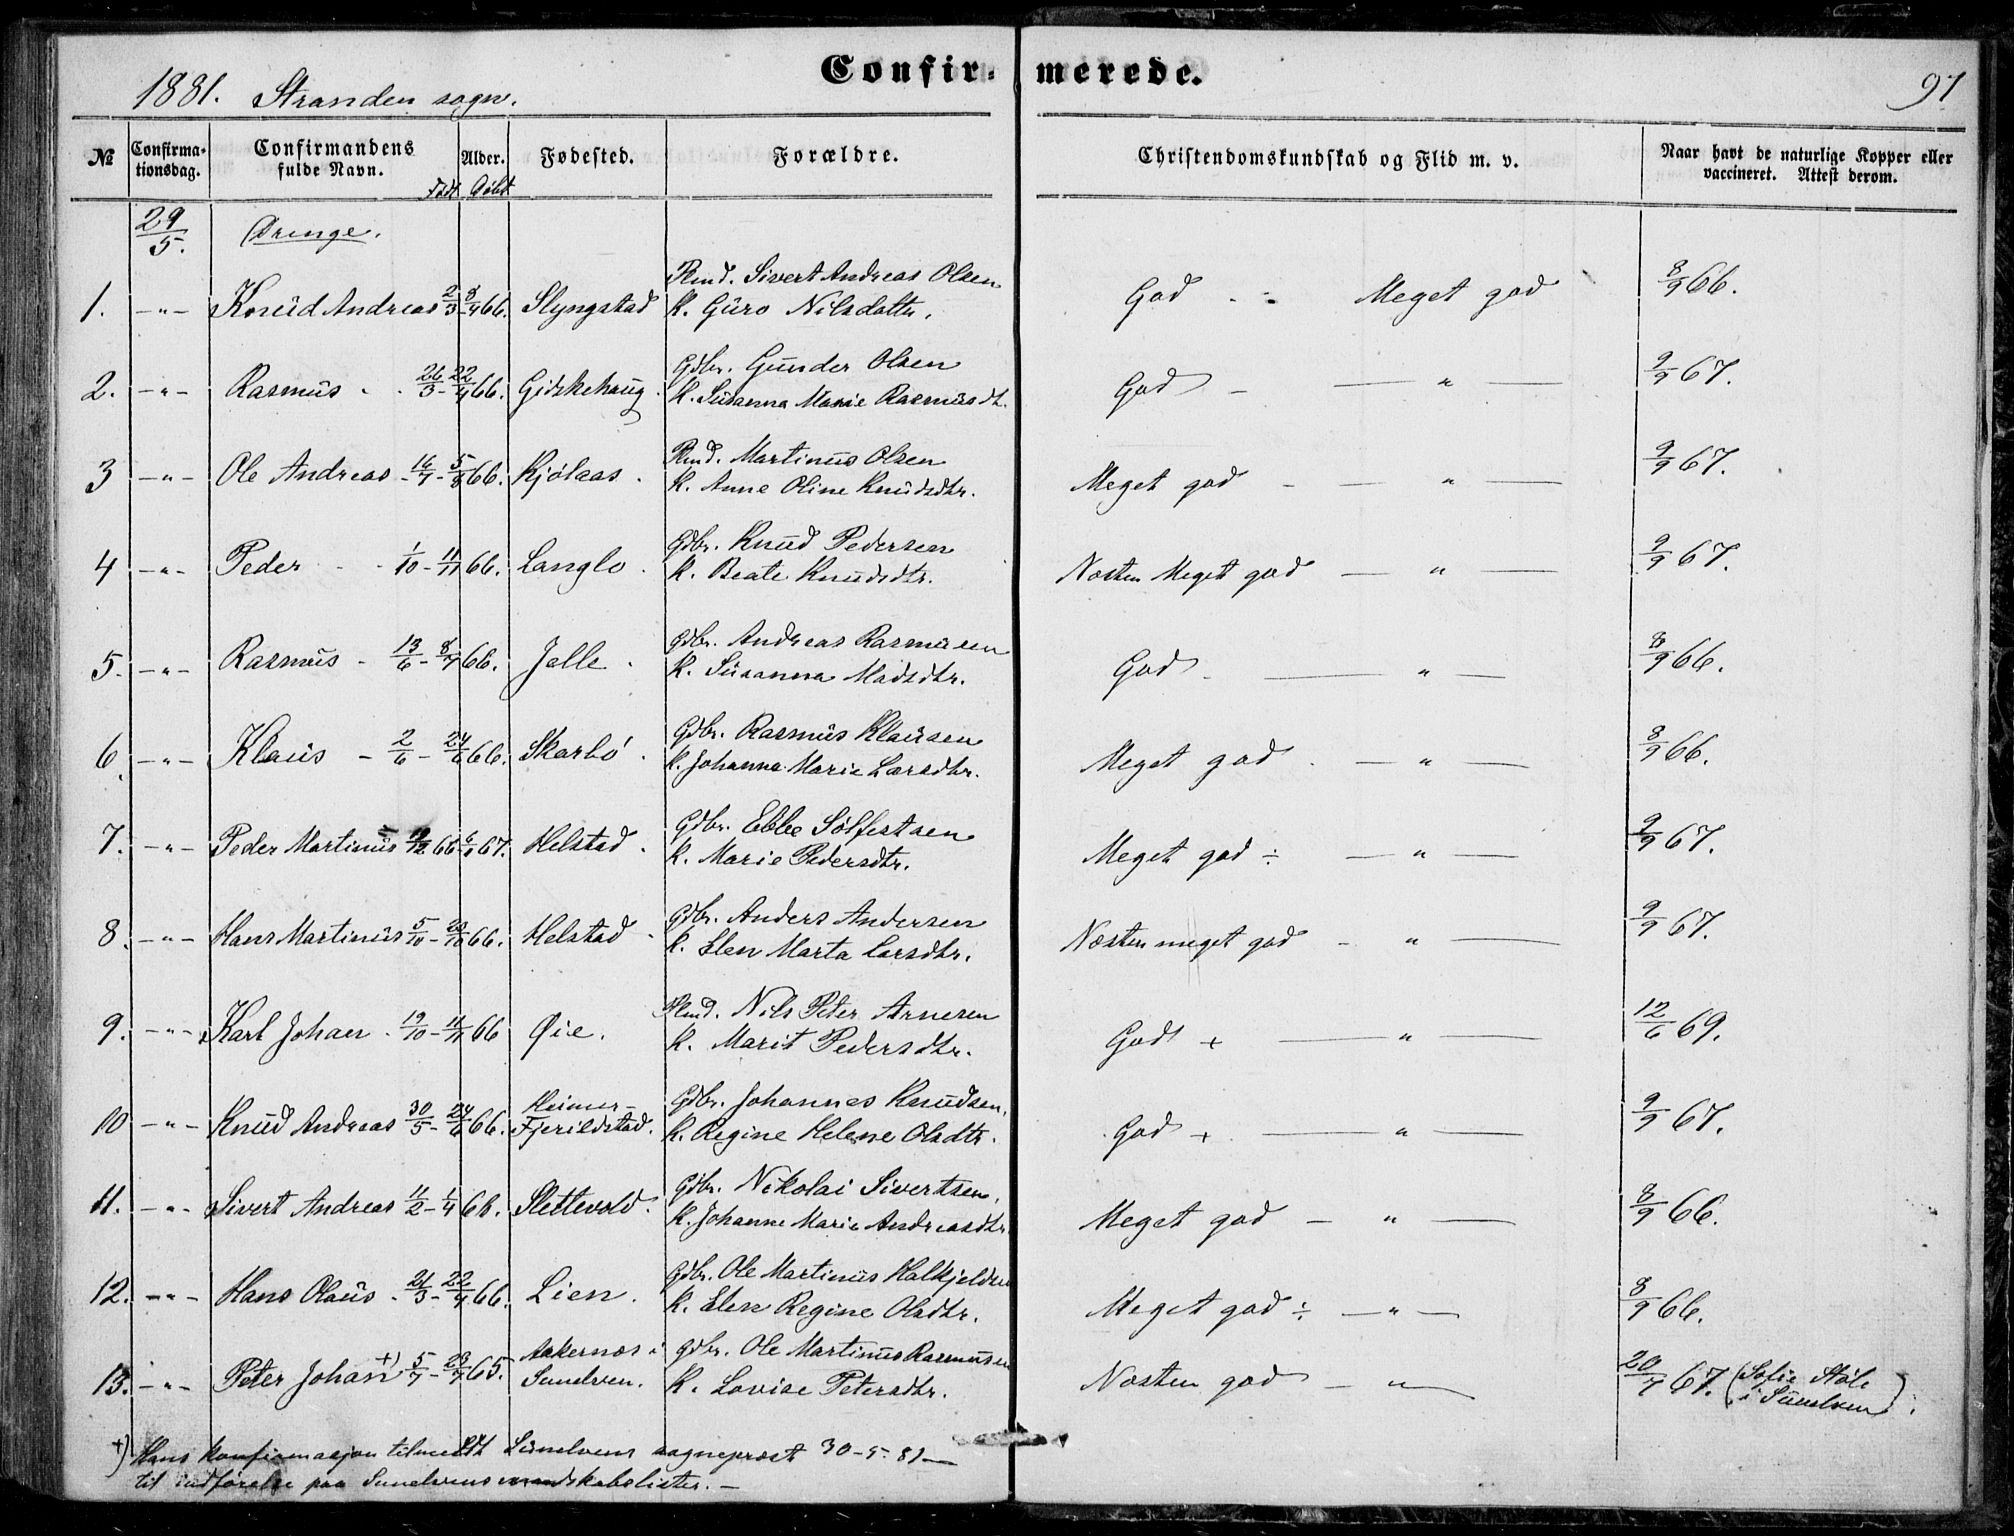 Confirmerede.
1881. Stranden sogn.
97
№ Confirmationsdag. Confirmandens fulde Navn. Alder. Født. Døbt. Fødested. Forældre. Christendomskundskab og Flid m. v. Naar havt de naturlige Kopper eller vaccineret. Attest derom.
29/5. Drenge.
Rmd. Sivert Andreas Olsen
1. -"- Knud Andreas 2/3 - 8/4 66. Slyngstad K. Guro Nilsdatter. God - ÷ Meget god 8/9 66.
Gdbr. Gunder Olsen
2. -"- Rasmus - - 26/3 - 22/4 66. Gidskehaug. K. Susanna Marie Rasmusdtr. God - — " — 9/9 67.
Rmd. Martinus Olsen
3 -"- Ole Andreas - 16/7 - 5/8 66. Kjølaas. K. Anne Oline Knudsdtr. Meget god - — " — 9/9 67.
Gdbr. Knud Pedersen
4 -"- Peder - - 1/10 - 11/11 66. Langlo. K. Beate Knudsdtr. Næsten Meget god — " — 9/9 67.
Gdbr. Andreas Rasmusen
5. -"- Rasmus - 13/6 - 8/7 66. Jelle. K. Susanna Madsdtr. God - — " — 8/9 66.
Gdbr. Rasmus Klausen
6. -"- Klaus - 2/6 - 24/6 66. Skarbø. K. Johanna Marie Larsdtr. Meget god - — " — 8/9 66.
Gdbr. Ebbe Sølfestsen
7. -"- Peder Martinus 66 - 67. Helstad. K. Marie Pedersdtr. Meget god ÷ — " — 9/9 67.
Gdbr. Anders Andersen
8. -"- Hans Martinus 5/10 - 28/10 66. Helstad K. Elen Marta Larsdtr. Næsten meget god - " — 9/9 67.
Nils Peter Arnesen
9. -"- Karl Johan - 19/10 - 11/11 66 Øie. K. Marit Pedersdtr. God + — " — 12/6 69.
Heimer- Gdbr. Johannes Knudsen.
10 -"- Knud Andreas 30/5 - 24/6 66. Fjerildstad. K. Regine Helene Olsdtr. God + — " — 9/9 67.
Gdbr. Nikolai Sivertsen.
11. -"- Sivert Andreas 11/2 - 1/4 66. Slettevold. K. Johanne Marie Andreasdtr. Meget god — " — 8/9 66.
Gdbr. Ole Martinus Halkjeldsen
12. -"- Hans Olaus - 21/3 - 22/4 66. Lien. K. Elen Regine Olsdtr. Meget god ÷ — " — 8/9 66.
Aakernæs i Gdbr. Ole Martinus Rasmusen
13. -"- Peter Johan +) 5/7 - 23/7 65. Sunelven. K. Lovise Petersdtr. Næsten god — " — 20/7 67. (Sofie Støle i Sunelven).
+) Hans konfirmasjon tilmeldt Sunelvens sogneprest 30-5-81 —
til indførelse paa Sunelvens mandskabslister. —